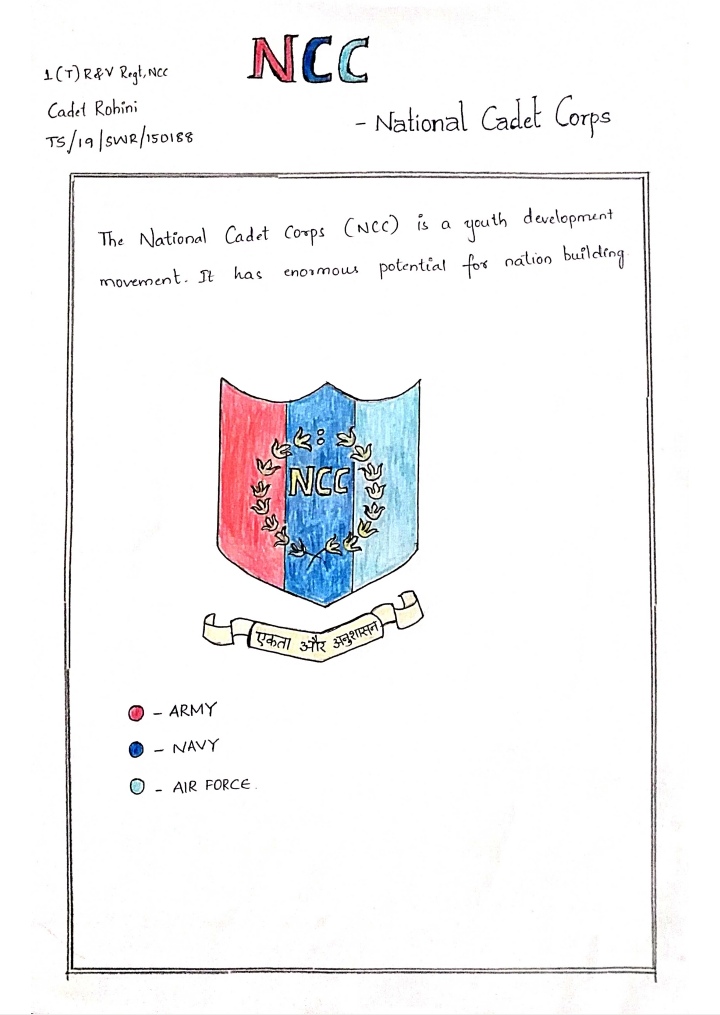 NCC
1(T) R&V Regt, NCC
Cadet Rohini
TS/19/SWR/150188
- National Cadet Corps
The National Cadet Corps (NCC) is a youth development
movement. It has enormous potential for nation building
NCC
एकता और अनुशासन
- ARMY
- NAVY
- AIR FORCE.